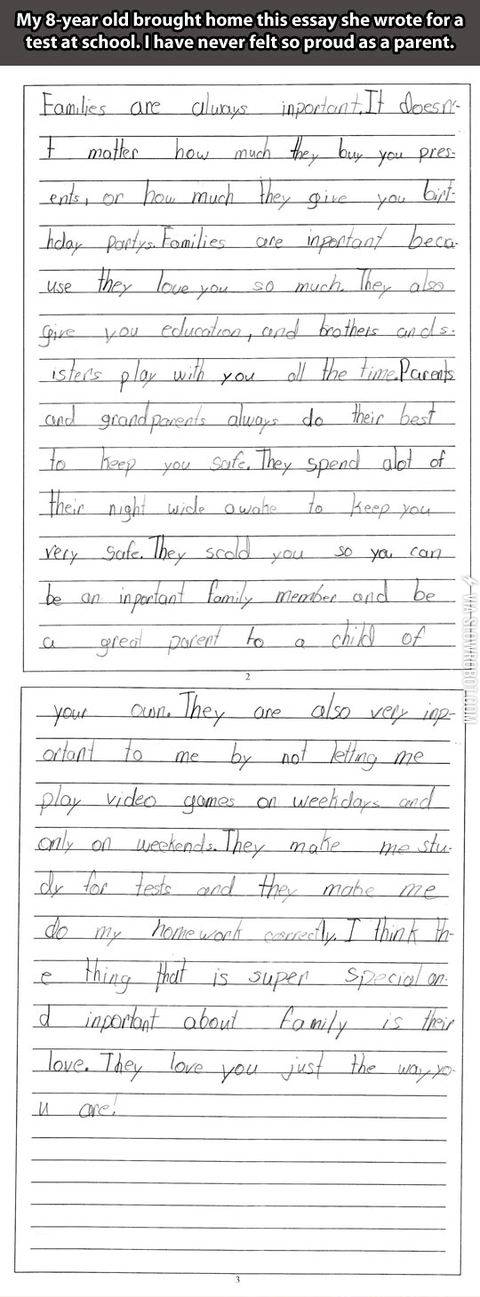 My 8-year old brought home this essay she wrote for a
test at school. I have never felt so proud as a parent.
Families are always inportant.It doesn'-
t matter how much they buy you pres-
ents, or how much they give you birt-
hday partys.Families are inportant beca-
use they love you so much. They also
give you education, and brothers and s-
isters play with you all the time.Parents
and grandparents always do their best
to keep you safe.They spend alot of
their night wide awake to keep you
very safe.They scold you so you can
be an inportant family member and be
a great parent to a child of
2
your own.They are also very inp-
ortant to me by not letting me
play video games on weekdays and
only on weekends.They make me stu-
dy for tests and they make me
do my homework correctly.I think th-
e thing that is super special an-
d inportant about family is their
love.They love you just the way yo-
u are!
3
VIA SLOWROBOT.COM